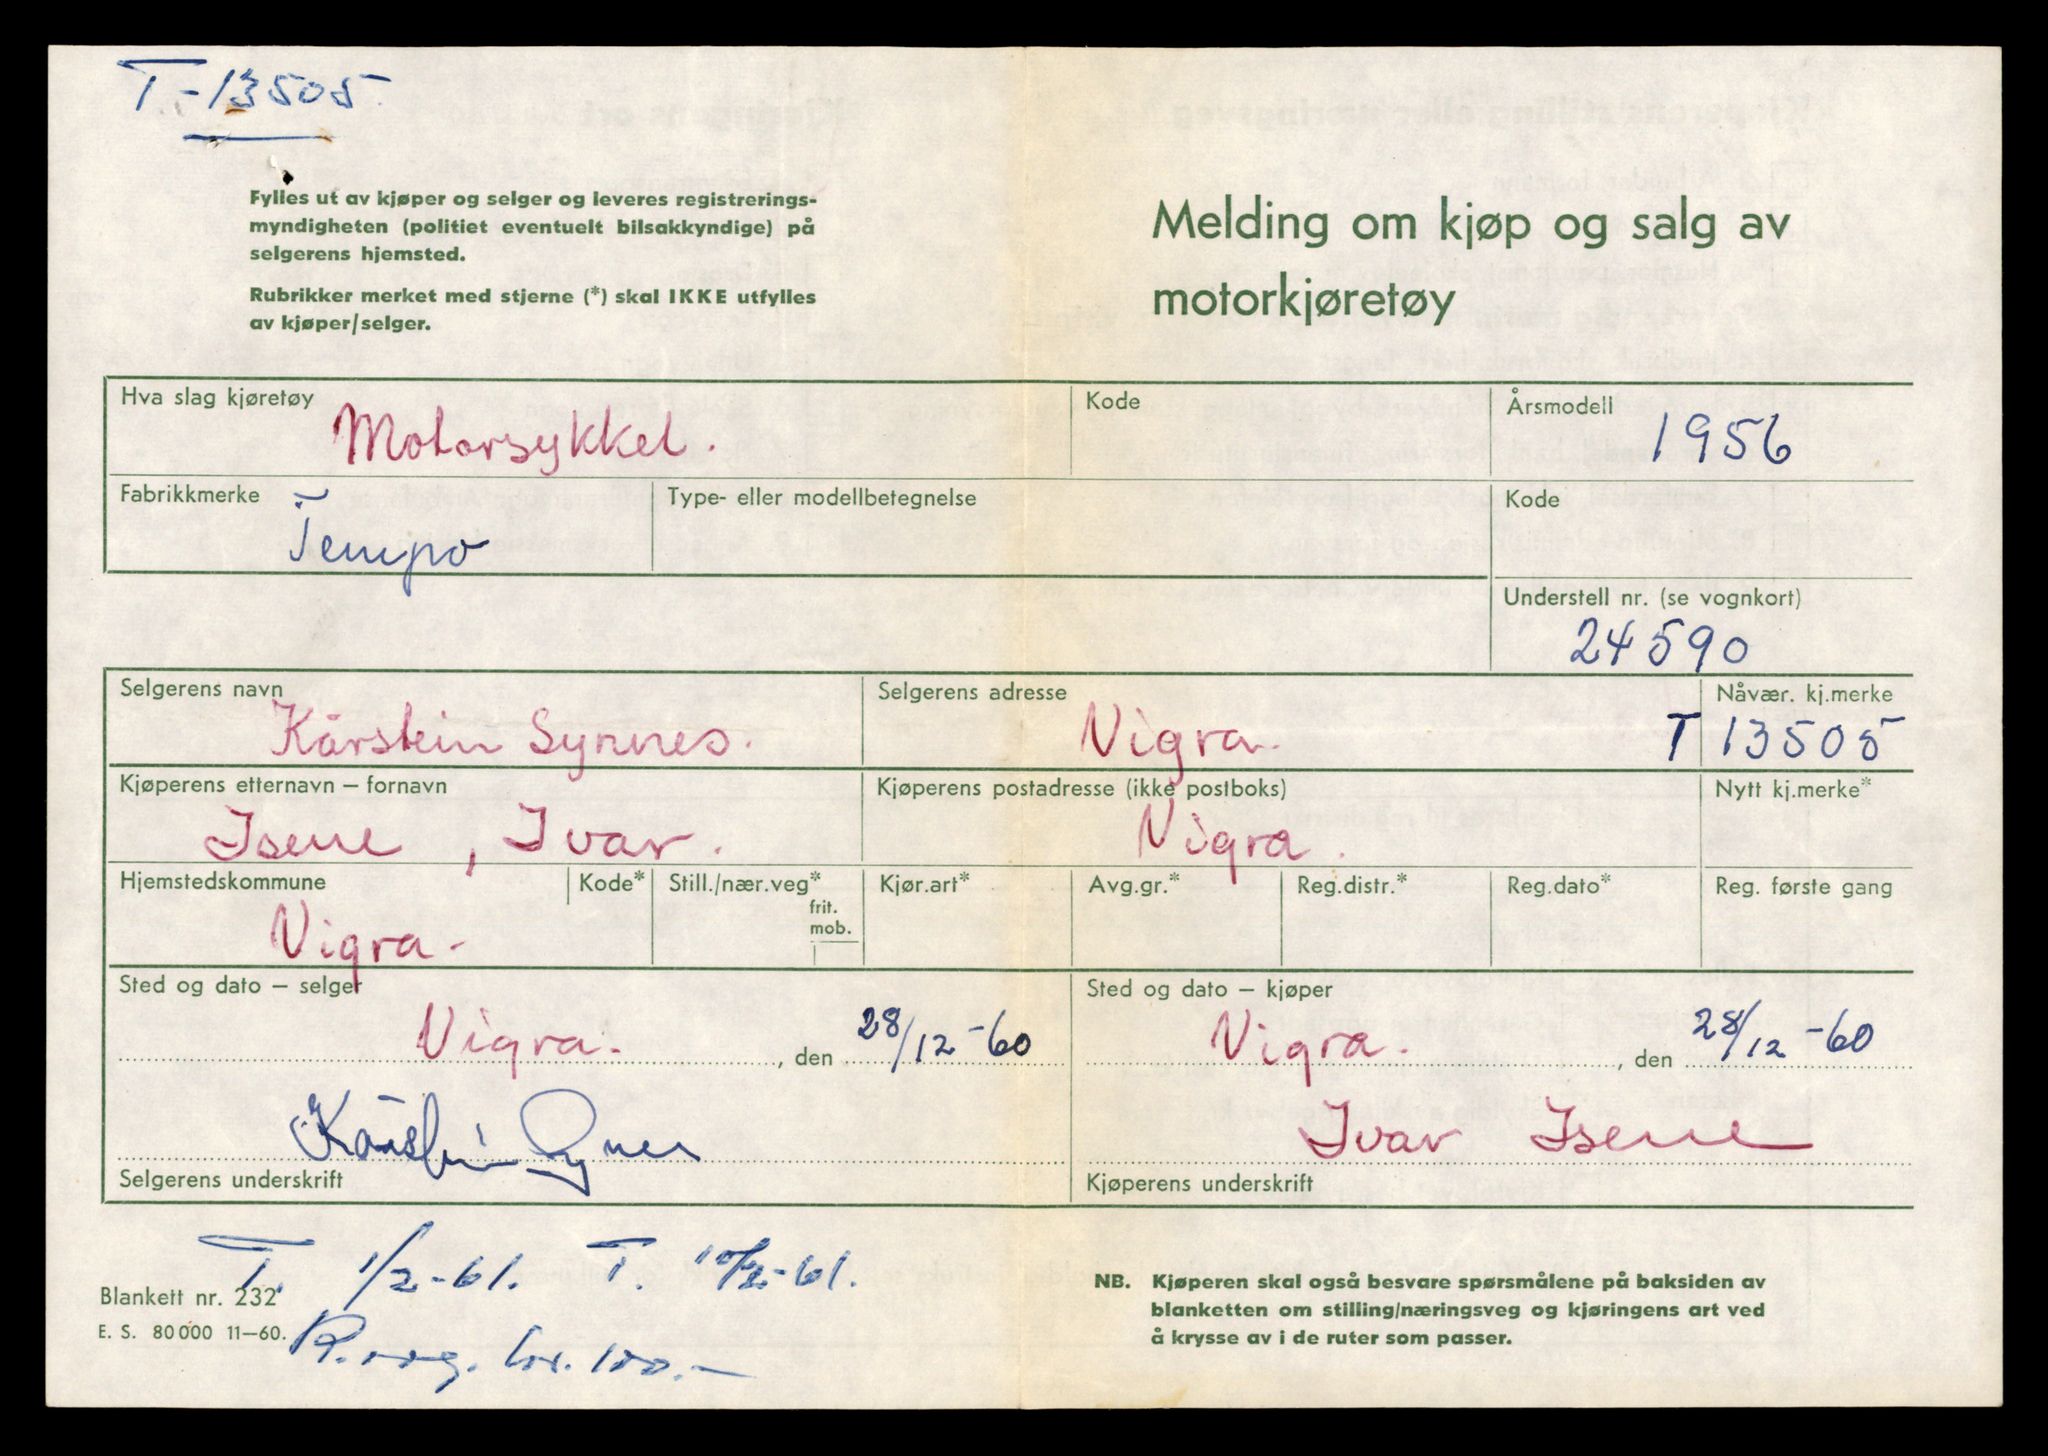 T-13505
Fylles ut av kjøper og selger og leveres registrerings-
myndigheten (politiet eventuelt bilsakkyndige) på
selgerens hjemsted.
Rubrikker merket med stjerne (*) skal IKKE utfylles
av kjøper/selger.
Melding om kjøp og salg av
motorkjøretøy
Hva slag kjøretøy
Motorsykkel.
Kode
Årsmodell
1956
Fabrikkmerke
Tempo
Type- eller modellbetegnelse
Kode
Understell nr. (se vognkort)
24590
Selgerens navn
Kårstein Synnes.
Selgerens adresse
Vigra.
Nåvær. kj.merke
T 13505
Kjøperens etternavn – fornavn
Isene, Ivar.
Kjøperens postadresse (ikke postboks)
Vigra.
Nytt kj.merke*
Hjemstedskommune
Vigra.
Kode*
Still./nær.veg*
frit.
mob.
Kjør.art*
Avg.gr.*
Reg.distr.*
Reg.dato*
Reg. første gang
Sted og dato – selger
Vigra. , den 28/12-60
Sted og dato – kjøper
Vigra. , den 28/12-60
Kårstein Synnes
Selgerens underskrift
Ivar Isene
Kjøperens underskrift
T. 1/2-61. T. 10/2-61.
Blankett nr. 232
E. S. 80000 11–60.
kr. 100.-
NB. Kjøperen skal også besvare spørsmålene på baksiden av
blanketten om stilling/næringsveg og kjøringens art ved
å krysse av i de ruter som passer.